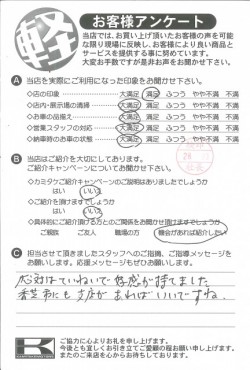 軽
お客様アンケート
当店では、お買い上げ頂いたお客様の声を可能
な限り現場に反映し、お客様により良い商品と
サービスを提供する事に努めています。
大変お手数ですが是非お声をお聞かせ下さい。
A 当店を実際にご利用になった印象をお聞かせ下さい。
◇店の印象 大満足 満足 ふつう やや不満 不満
◇店内・展示場の清掃 大満足 満足 ふつう やや不満 不満
◇お車の品揃え 大満足 満足 ふつう やや不満 不満
◇営業スタッフの対応 大満足 満足 ふつう やや不満 不満
◇納車時のお車の状態 大満足 満足 ふつう やや不満 不満
B 当店はご紹介を大切にしております。
ご紹介キャンペーンについてお聞かせ下さい。
◇カミタケご紹介キャンペーンのご説明はありましたでしょうか
はい いいえ
◇ご紹介を頂けますでしょうか
はい いいえ
◇具体的にご紹介頂ける方とのご関係をお聞かせ頂けますでしょうか
ご親族 ご友人 職場の方 機会があれば紹介したい
C 担当させて頂きましたスタッフへのご指摘、ご指導メッセージを
お願いします。応援メッセージもぜひお願いします。
応対はていねいで好感が持てました
香芝市にも支店があればいいですね。
K
ご協力に心よりお礼を申し上げます。
今後とも宜しくお引き立てご愛顧の程お願い申し上げます。
またのご来店を心からお待ちしております。